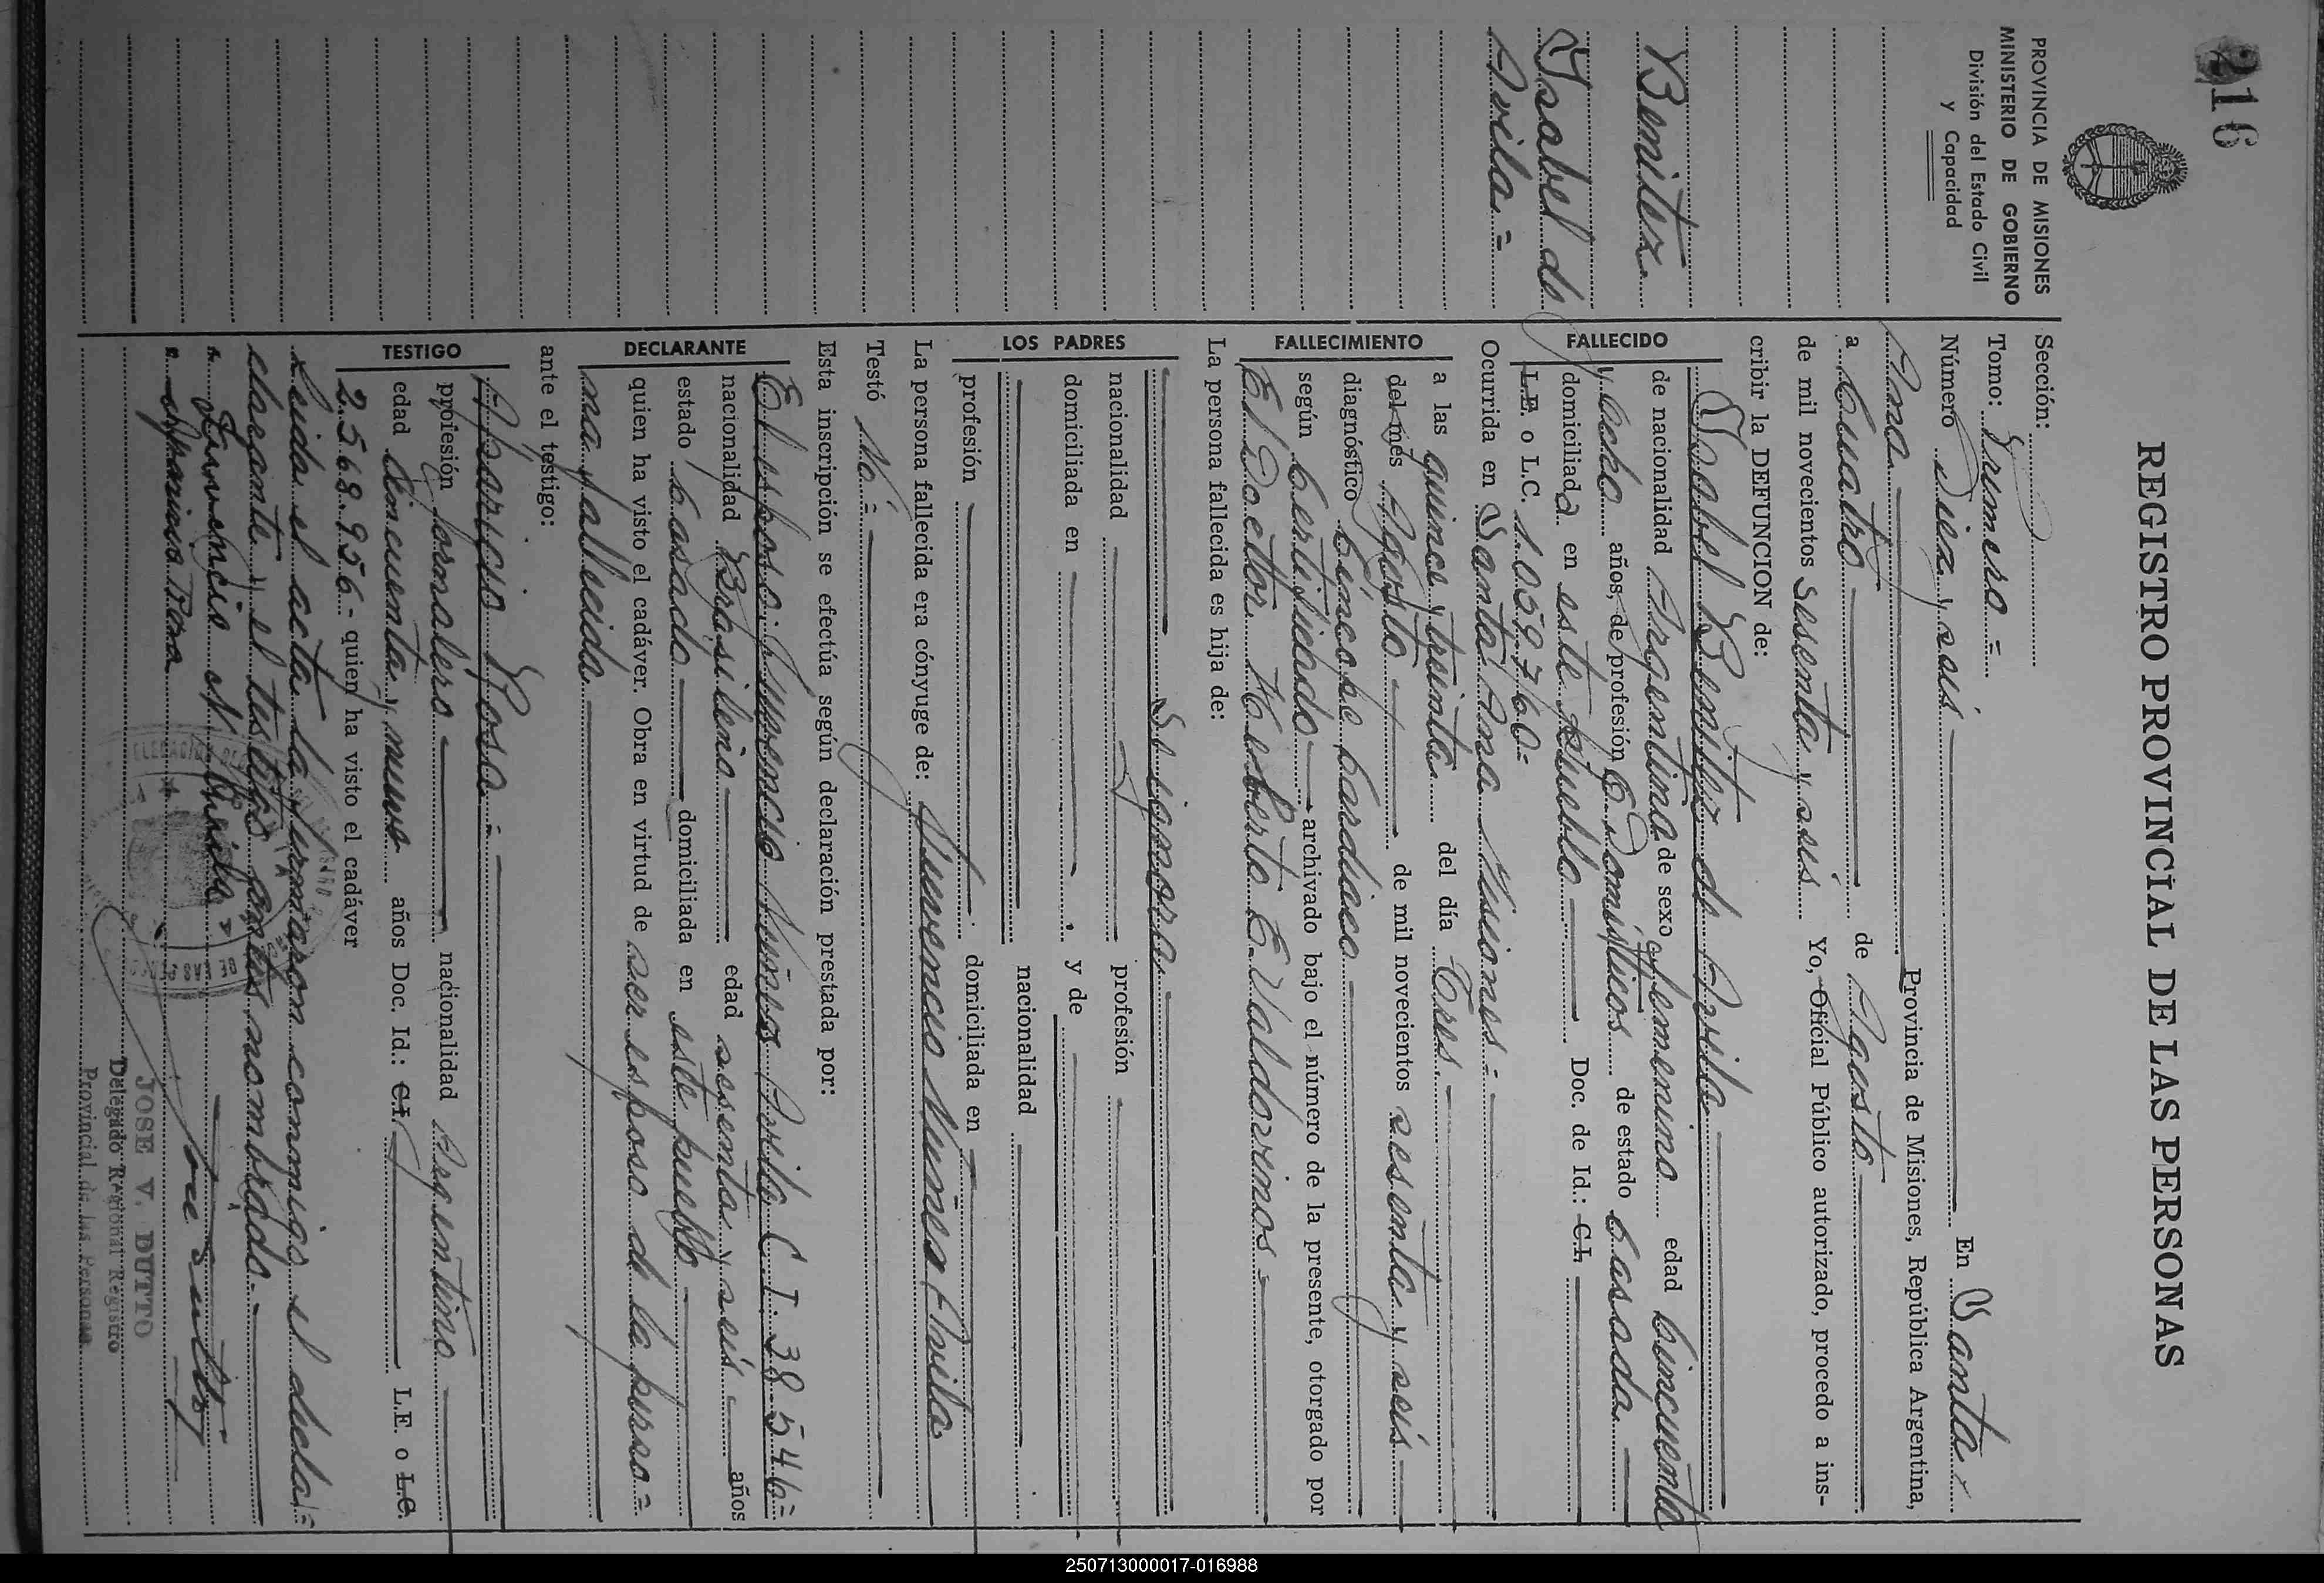 216
PROVINCIA DE MISIONES
MINISTERIO DE GOBIERNO
División del Estado Civil
y Capacidad
REGISTRO PROVINCIAL DE LAS PERSONAS
Benitez
Isabel de
Avila=
Sección:
Tomo: Primero=
Número Diez y seis En Santa
Ana Provincia de Misiones, República Argentina,
a Cuatro de Agosto
de mil novecientos sesenta y seis Yo, Oficial Público autorizado, procedo a ins-
cribir la DEFUNCION de:
FALLECIDO
Isabel Benitez de Avila
de nacionalidad Argentina de sexo femenino edad cincuenta
y ocho años, de profesión Q. Domésticos de estado casada
domiciliada en este pueblo Doc. de Id.: C.I.
L.E. o L.C. 1.059.760=
Ocurrida en Santa Ana Misiones=
FALLECIMIENTO
a las quince y treinta del día Tres
del mes Agosto de mil novecientos sesenta y seis
diagnóstico Síncope cardiaco
según certificado archivado bajo el número de la presente, otorgado por
El Doctor Heriberto E. Valdovinos
La persona fallecida es hija de:
LOS PADRES
Se ignora
nacionalidad profesión
domiciliada en y de
nacionalidad
profesión domiciliada en
La persona fallecida era cónyuge de: Juvencio Nuñes Avila
Testó No=
Esta inscripción se efectúa según declaración prestada por:
DECLARANTE
El esposo: Juvencio Nuñes Avila C.I. 38.546=
nacionalidad Brasileño edad sesenta y seis años
estado casado domiciliada en este pueblo
quien ha visto el cadáver. Obra en virtud de ser esposo de la perso=
na fallecida
ante el testigo:
TESTIGO
Aparicio Rosa
profesión jornalero nacionalidad Argentino
edad cincuenta y nueve años Doc. Id.: C.I. L.E. o L.C.
2.568.956- quien ha visto el cadáver
Leida el acta la firmaron conmigo el decla=
clarante y el testigo antes nombrado.
Juvencio N Avila
Aparicio Rosa
JOSE V. DUTTO
Delegado Regional Registro
Provincial de las Personas
250713000017-016988